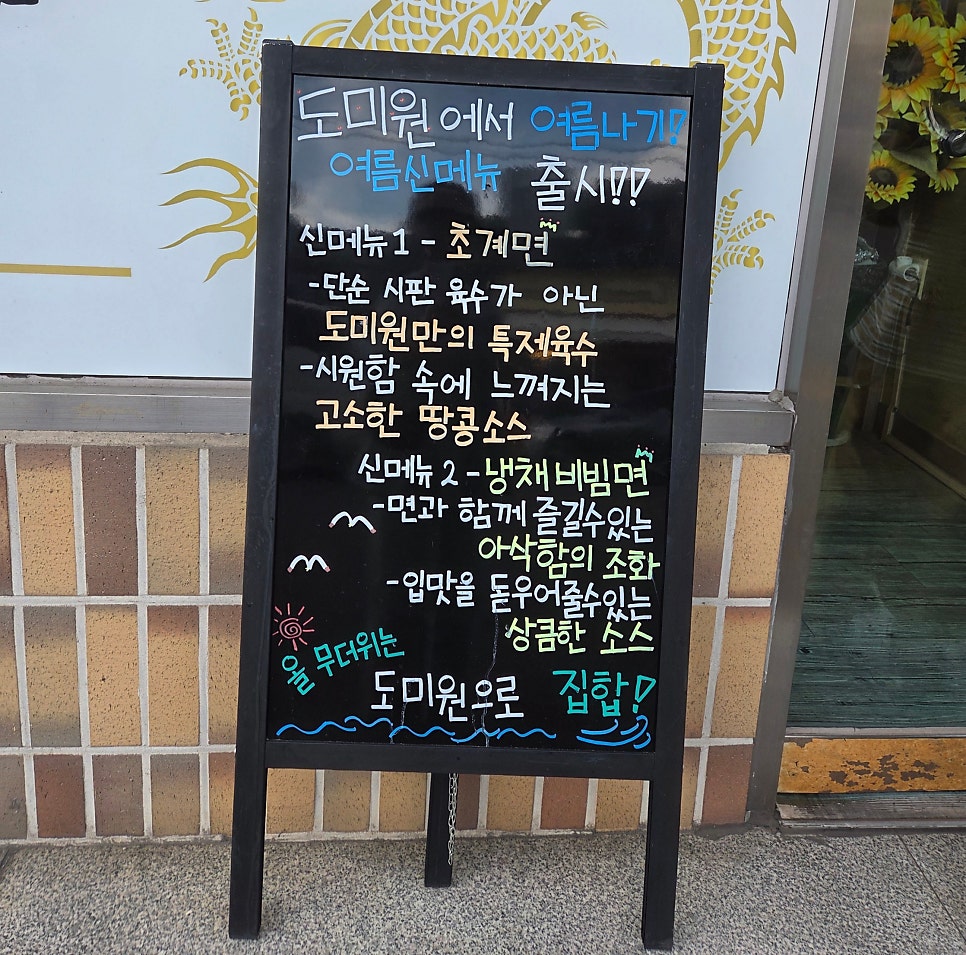 도미원에서 여름나기!
여름신메뉴 출시!!
신메뉴1 - 초계면
-단순 시판 육수가 아닌
도미원만의 특제육수
-시원함 속에 느껴지는
고소한 땅콩소스
신메뉴2 - 냉채비빔면
-면과 함께 즐길수있는
아삭함의 조화
-입맛을 돋우어줄수있는
상큼한 소스
올 무더위는
도미원으로 집합!